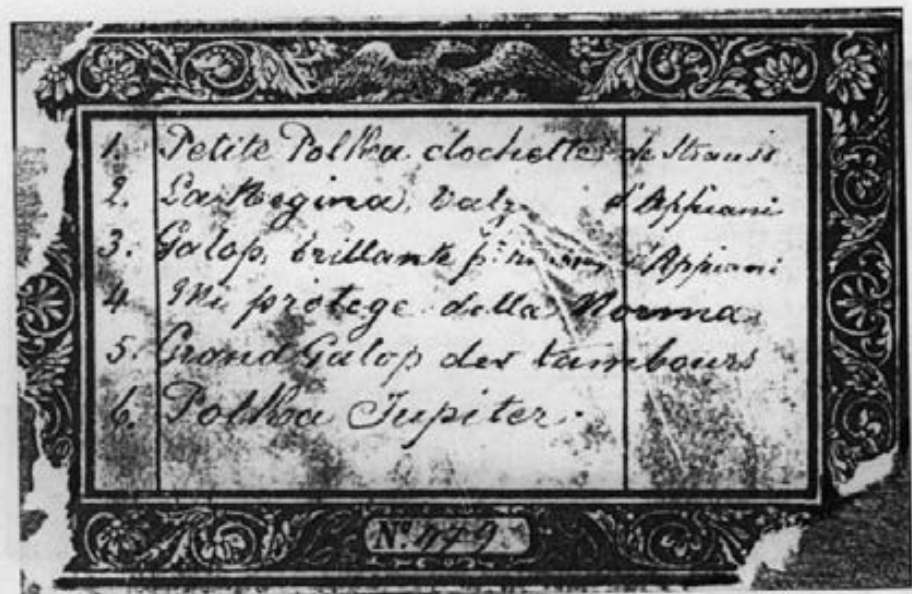 1. Petite Polka clochettes de Strauss
2. La Regina, Valz d'Appiani
3. Galop, brillante d'Appiani
4. Mi protege della Norma
5. Grand Galop des tambours
6. Polka Jupiter.
No. 479